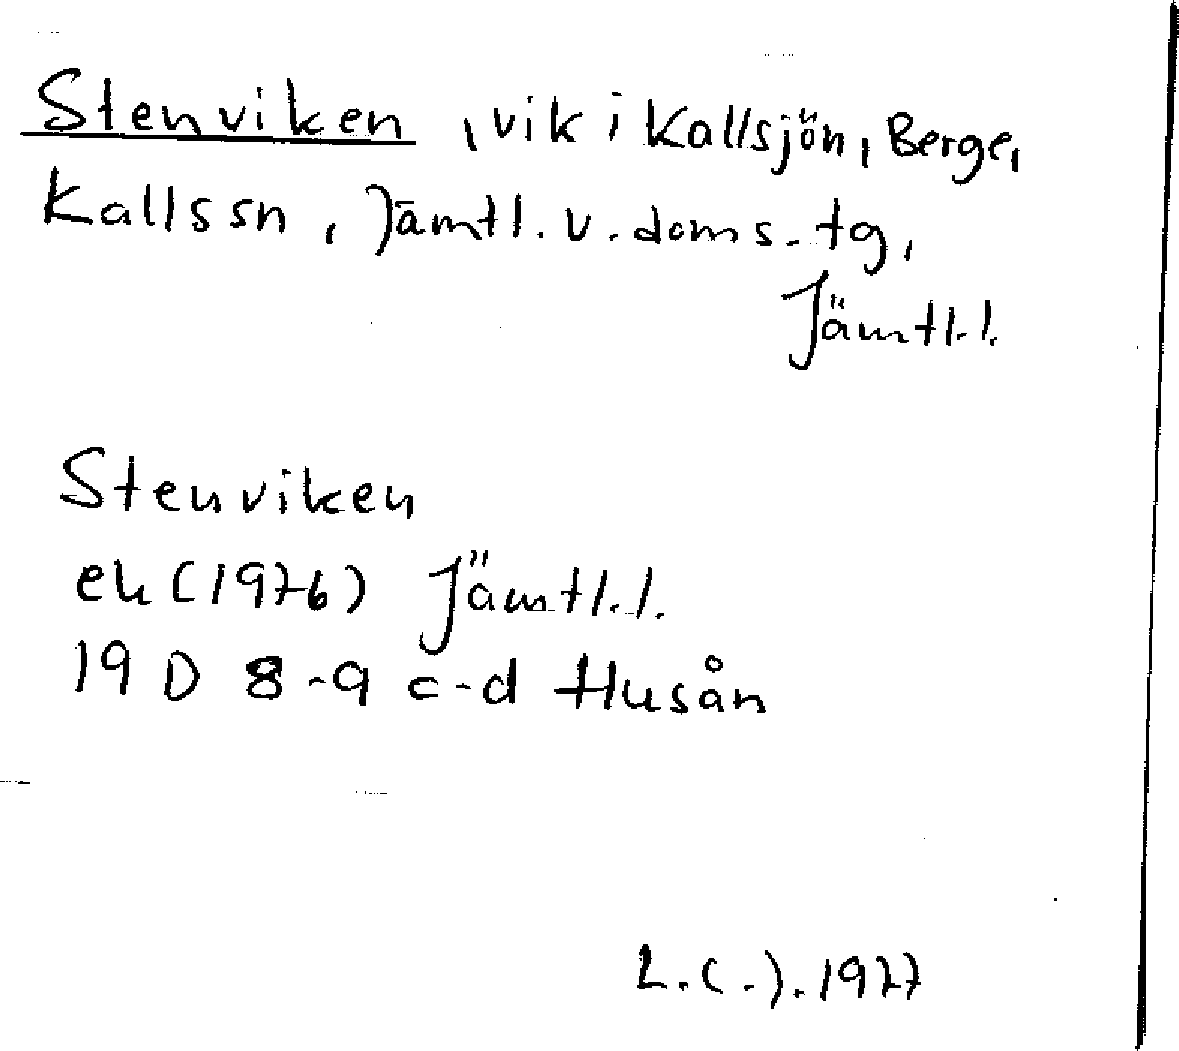 Stenviken, vik i Kallsjön, Berge,
Kallssn, Jämtl. v. doms. tg,
Jämtl.l.
Stenviken
ek (1976) Jämtl.l.
19 D 8-9 c-d Husån
L.(-).1977